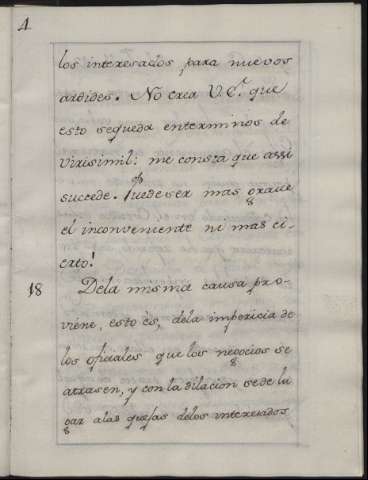 4
los interesados para nuevos
ardides. No crea V.E. que
esto sequeda enterminos de
virisimil: me consta que assi
succede. Puedeser mas grave
el inconveniente ni mas ci-
erto!
18 Dela misma causa pro-
viéne, esto és, dela impericia de
los oficiales que los negocios se
atrasen, y con la dilacion sede lu
gar alas quejas delos interesados